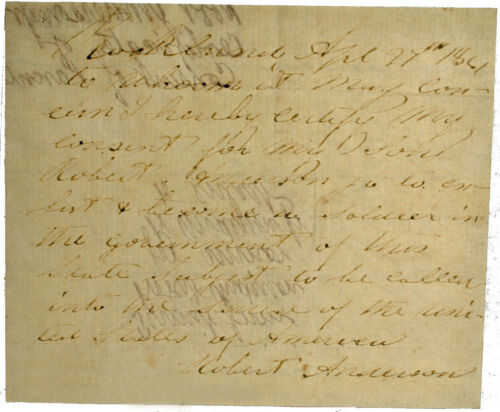 Rock Island Apl 27th 1861
to whom it May con-
cern I hereby certify My
consent for My Son
Robert Anderson jr to en-
list & become a Soldier in
the government of this
State subject to be called
into the service of the uni-
ted States of America
Robert Anderson